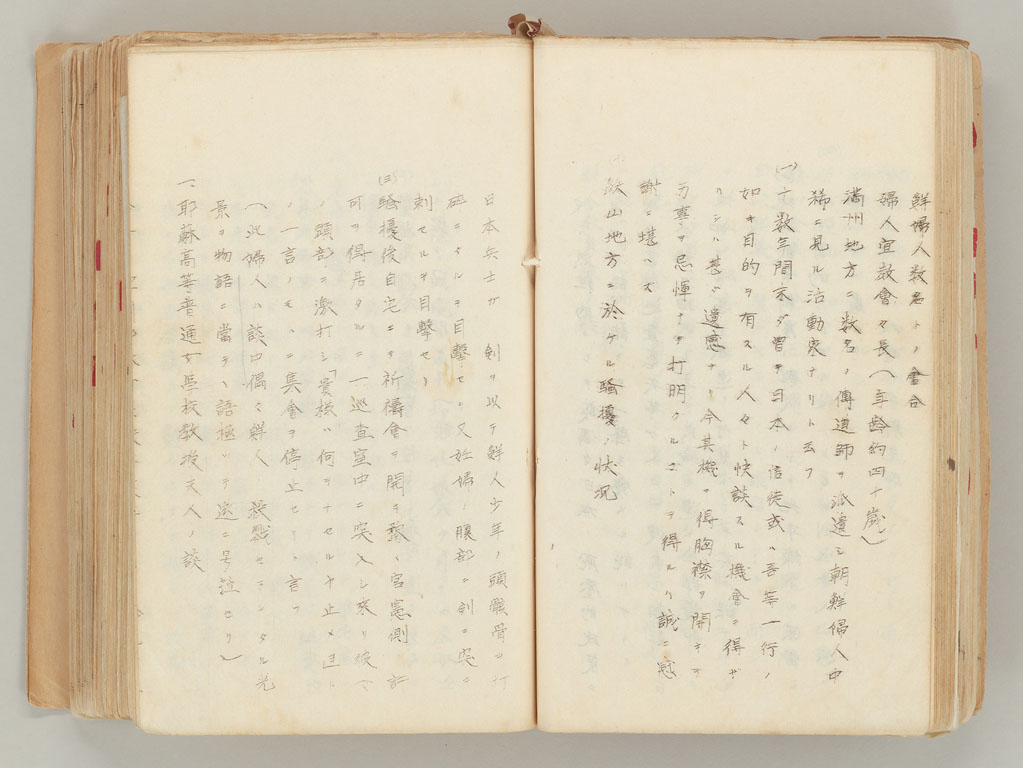 鮮婦人数名トノ會合
婦人宣教會々長(年齢約四十歳)
満州地方ニ数名ノ傳道師ヲ派遣シ朝鮮婦人中
稀ニ見ル活動家ナリト云フ
(一)十数年間未ダ曽テ日本ノ信徒或ハ吾等一行ノ
如キ目的ヲ有スル人々ト快談スル機會ヲ得ザ
リシハ甚ダ遺憾ナリ今其機ヲ得胸襟ヲ開キテ
万事ヲ忌憚ナク打明クルコトヲ得ルハ誠ニ感
謝ニ堪ヘズ
鉄山地方ニ於ケル騒擾ノ状况
日本兵士ガ 剣ヲ以テ鮮人少年ノ頭骸骨ヲ打
砕ニタルヲ目撃セシ又妊婦ノ腹部ニ剣ニ突ニ
刺セルヲ目撃セリ
(三)騒擾後自宅ニテ祈禱會ヲ開キ警官憲側ノ許
可ヲ得居タルニ一巡査室中ニ突入シ来リ娘
ノ頭部ヲ激打シ「貴様ハ何ヲナセルヤ止メヨ」
ノ一言ノモトニ集會ヲ停止セリト言フ
(此婦人ハ談中偶々鮮人 殺戮セラレタル光
景ヲ物語ニ當テ、語極ッテ遂ニ号泣セリ)
一、耶蘇高等普通女學校教授夫人ノ談